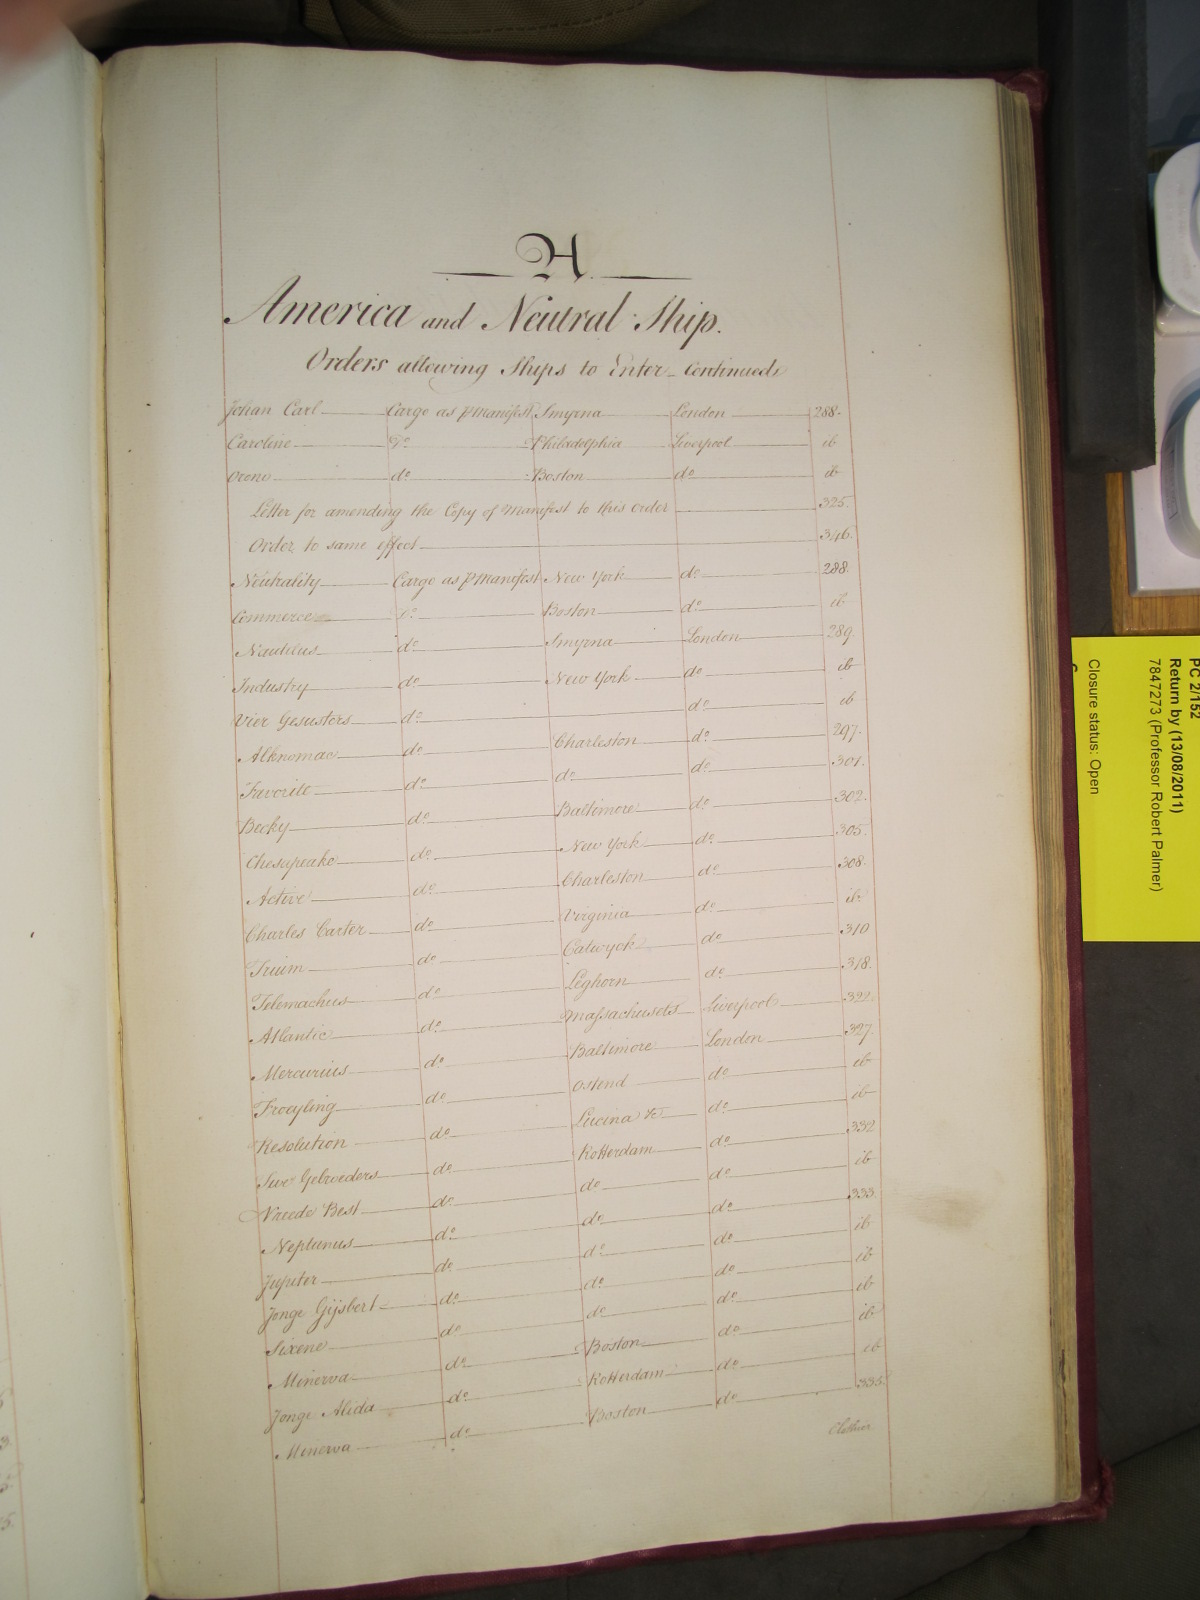 A
America and Neutral Ship.
Orders allowing Ships to Enter continued
Johan Carl Cargo as p Manifest Smyrna London 288.
Caroline Do Philadelphia Liverpool ib
Orono do Boston do ib
Letter for amending the Copy of Manifest to this order 325.
Order to same effect 346.
Neutrality Cargo as p Manifest New York do 288.
Commerce Do Boston do ib
Nautilus do Smyrna London 289.
Industry do New York do ib
Vier Gesustors do do ib
Alknomac do Charleston do 297.
Favorite do do do 301.
Becky do Baltimore do 302.
Chesapeake do New York do 305.
Active do Charleston do 308.
Charles Carter do Virginia do ib
Trium do Catwyck do 310
Telemachus do Leghorn do 318.
Atlantic do Massachusets Liverpool 322.
Mercurius do Baltimore London 327.
Froayling do Ostend do ib
Resolution do Lucina &c do ib
Twee Gebroeders do Rotterdam do 332
Vreede Best do do do ib
Neptunus do do do 333.
Jupiter do do do ib
Jonge Gijsbert do do do ib
Sixene do do do ib
Minerva do Boston do ib
Jonge Alida do Rotterdam do ib
Minerva do Boston do 335.
PC 2/152
Return by (13/08/2011)
7847273 (Professor Robert Palmer)
Closure status: Open